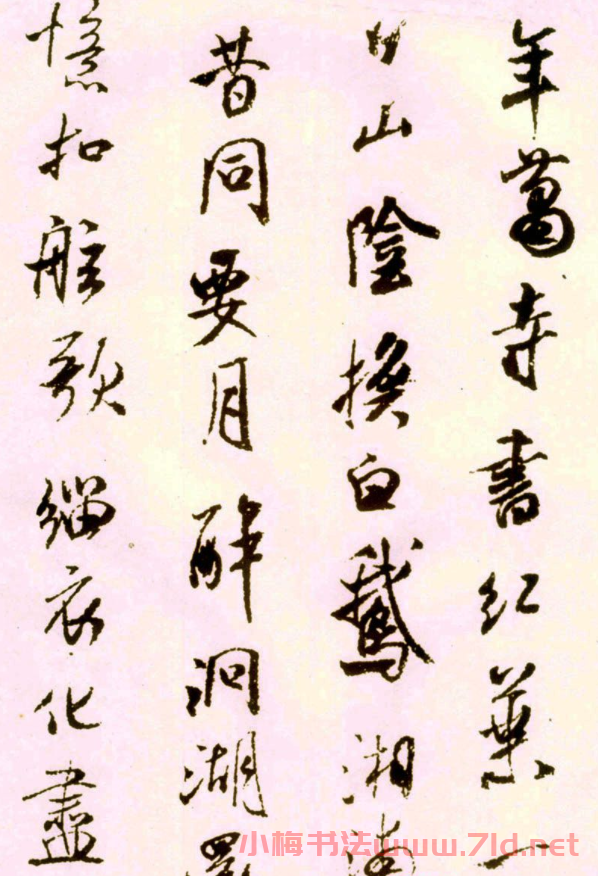 年寺書紅葉一
日山陰換白鵝湘
昔同要月醉洞湖還
憶扣舷歌緇衣化盡
小梅书法www.7ld.net